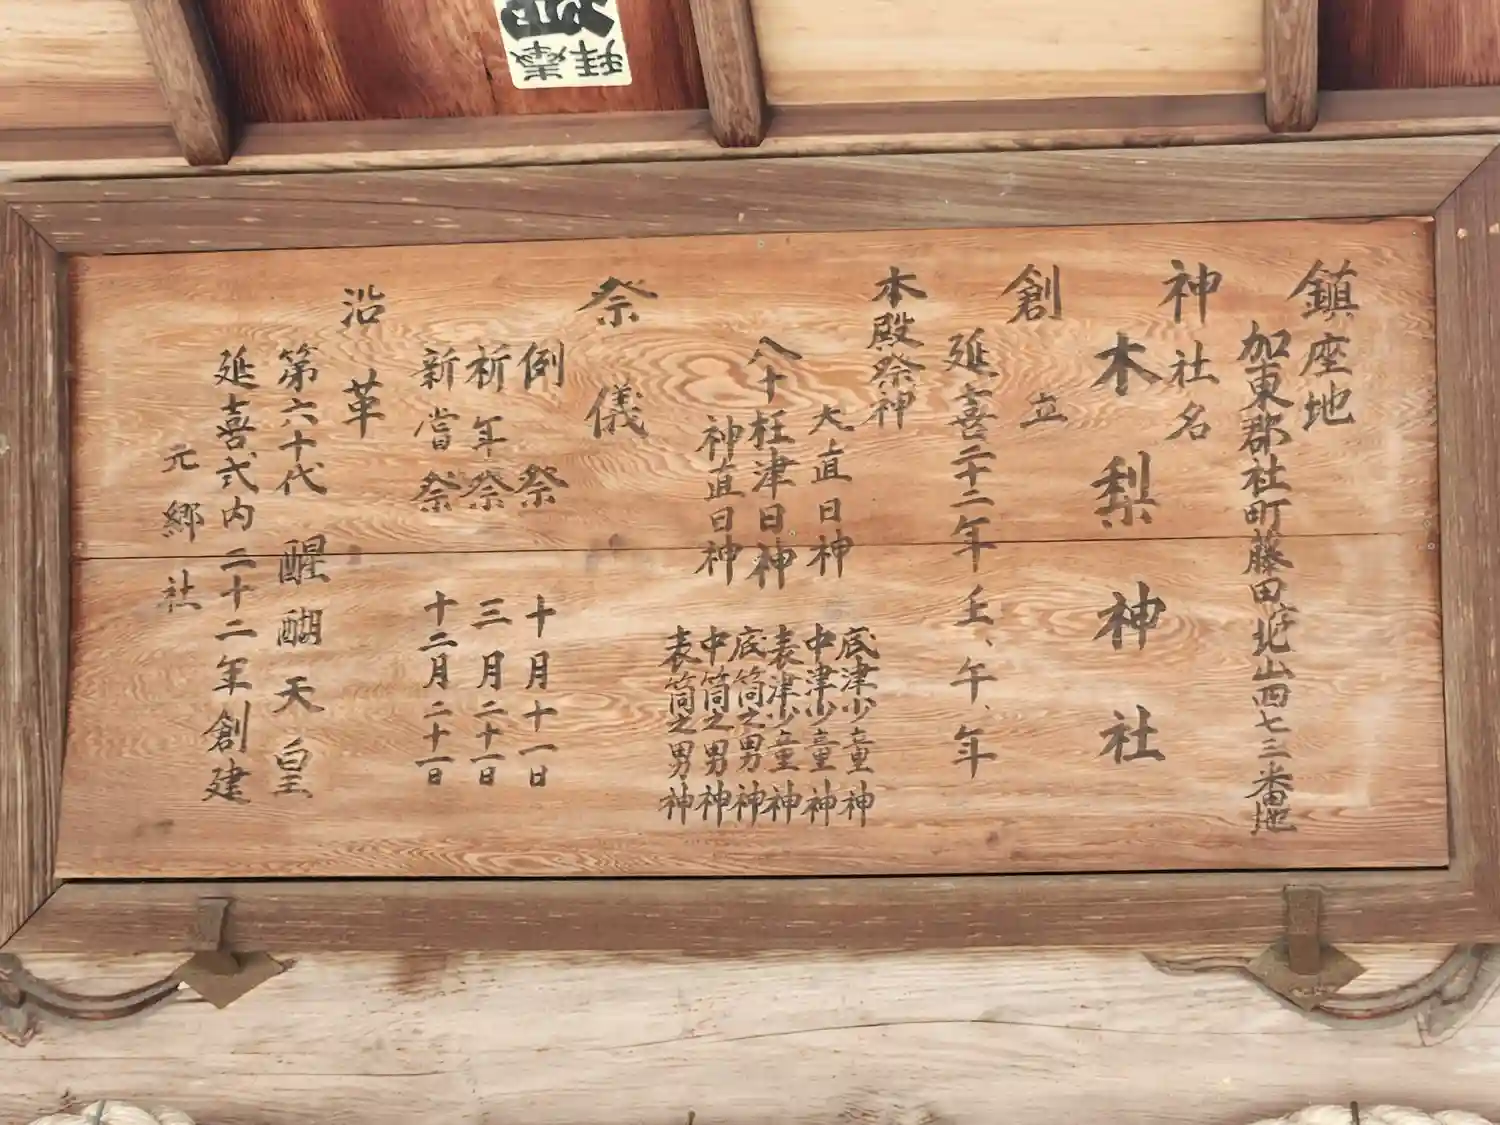 鎮座地
加東郡社町藤田字北山四七三番地
神社名
木梨神社
創立
延喜二十二年壬、午、年
本殿祭神
大直日神
八十枉津日神
神直日神
底津少童神
中津少童神
表津少童神
底筒之男神
中筒之男神
表筒之男神
祭儀
例祭 十月十一日
祈年祭 三月二十一日
新嘗祭 十二月二十一日
沿革
第六十代 醍醐天皇
延喜式内二十二年創建
元郷社
拝